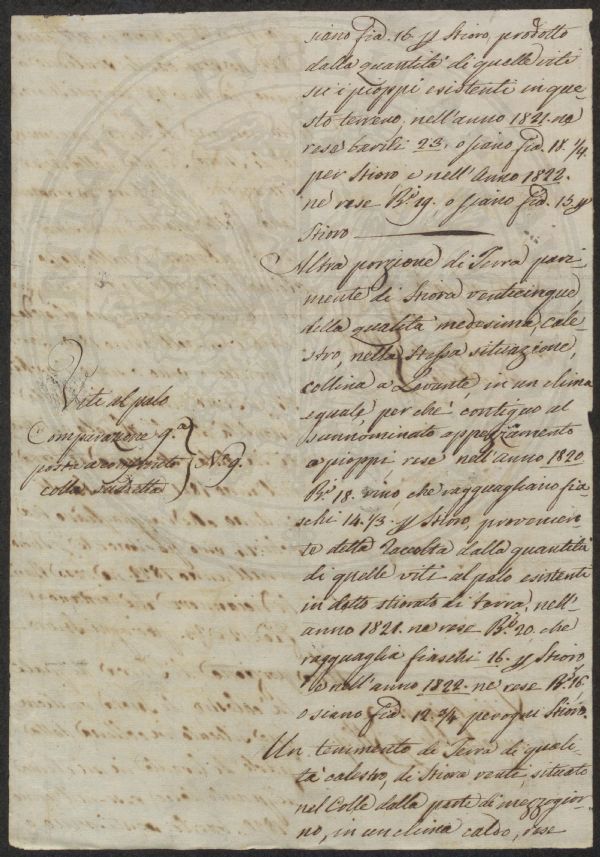 siano fia. 16. p Stioro, prodotto
dalla quantità di quelle viti
su i pioppi esistenti in que-
sto terreno, nell'anno 1821. ne
rese barili 23. o siano fia. 18. 1/4.
per Stioro e nell'Anno 1822.
ne rese B.i 19. o siano fia. 15 p
Stioro
Altra porzione di Terra pari-
mente di Stiora venticinque,
della qualità medesima, cale-
stro, nella stessa situazione,
collina a Levante, in un clima
eguale, perchè contiguo al
sunnominato appezzamento
a pioppi rese nell'Anno 1820
B.i 18. vino, che ragguagliano fia-
schi 14. 1/3. p Stioro, provenien-
te della Raccolta dalla quantità
di quelle viti al palo esistenti
in detto stiorato di terra, nell'
anno 1821. ne rese B.i 20. che
ragguaglia fiaschi 16. p Stioro
e nell'anno 1822. ne rese B.i 16.
o siano fia. 12. 3/4 per ogni Stioro.
Un tenimento di Terra di quali-
tà calestro, di Stiora venti, situato
nel Colle dalla parte di mezzogior-
no, in un clima caldo, rese
Vite al palo
Comparazione q.a
posta a confronto
colla sudetta
N.o 9.